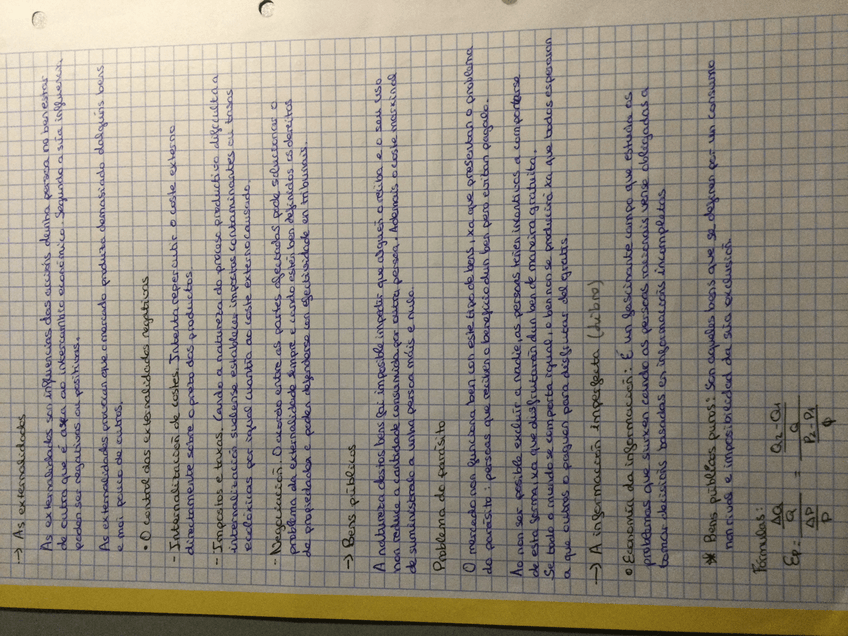 → As externalidades
As externalidades son influencias das accións dunha persoa no benestar
de outra que é allea ao intercambio económico. Segundo a súa influencia,
poden ser negativas ou positivas.
As externalidades provocan que o mercado produza demasiado dalgúns bens
e moi pouco de outros.
• O control das externalidades negativas
- Internalización de costes. Intenta repercutir o coste externo
directamente sobre o prezo dos productos
- Impostos e taxas. Cando a natureza do proceso productivo dificulta a
internalización sucédense establecer impostos contaminantes ou taxas
ecolóxicas por igual cuantía ao coste externo causado.
- Negociación. O acordo entre as partes afectadas pode solucionar o
problema da externalidade sempre e cando estén ben definidos os dereitos
de propiedade e poidan defenderse con efectividade en tribunais.
→ Bens públicos
A natureza destos bens fai imposible impedir que alguén o reciba e o seu uso
non reduce a cantidade consumida por outra persoa. Ademais o coste marxinal
de suministralo a unha persoa máis é nulo.
Problema do parásito
O mercado non funciona ben con este tipo de bens, xa que presentan o problema
do parásito: persoas que reciben o beneficio dun ben pero evitan pagalo.
Ao non ser posible excluír a nadie, as persoas teñen incentivos a comportarse
de esta forma xa que disfrutarán dun ben de maneira gratuita.
Se todo o mundo se comporta igual, o ben non se producirá xa que todos esperarán
a que outros o paguen para disfrutar del gratis.
→ A información imperfecta (Libro)
• Economía da información: É un fascinante campo que estudia os
problemas que surxen cando as persoas racionais vense obligadas a
tomar decisións basadas en informacións incompletas
* Bens públicos puros: Son aqueles bens que se definen por un consumo
non rival e imposibilidad da súa exclusión.
Fórmulas:
Ep = (ΔQ/Q) / (ΔP/P) = ((Q2-Q1)/Q) / ((P2-P1)/P)